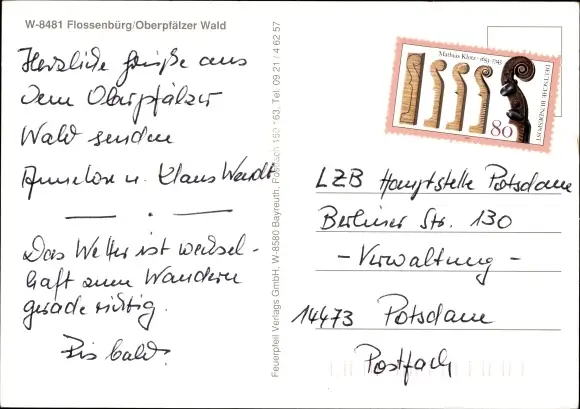 W-8481 Flossenbürg/Oberpfälzer Wald
Herzliche Grüße aus
dem Oberpfälzer
Wald senden
Annelore u. Klaus Wendt
Das Wetter ist wechsel-
haft zum Wandern
gerade richtig.
Bis bald!
Feuerpfeil Verlags GmbH, W-8580 Bayreuth, Postfach 63, Tel. 09 21 / 4 62 57
Mathias Klotz · 1653-1743
DEUTSCHE BUNDESPOST
80
LZB Hauptstelle Potsdam
Berliner Str. 130
- Verwaltung -
14473 Potsdam
Postfach